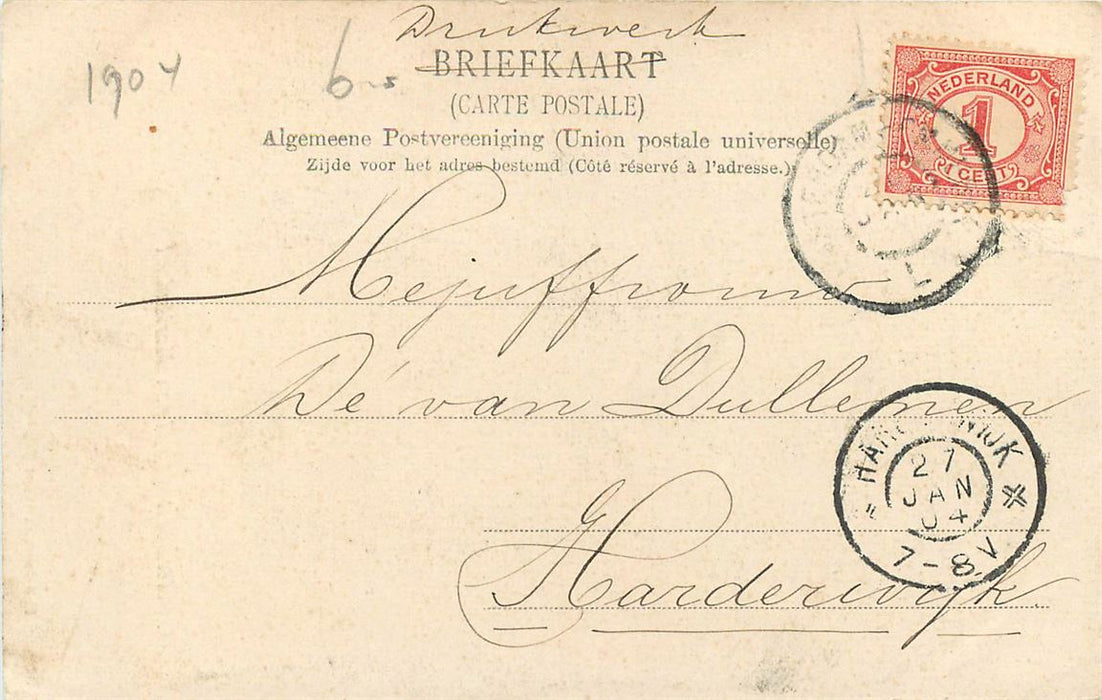 Drukwerk
1904
6
BRIEFKAART
(CARTE POSTALE)
Algemeene Postvereeniging (Union postale universelle)
Zijde voor het adres bestemd (Côté réservé à l'adresse.)
NEDERLAND
1
1 CENT
Mejuffrouw
Dé van Dullemen
Harderwijk
HARDERWIJK
27
JAN
04
7-8V